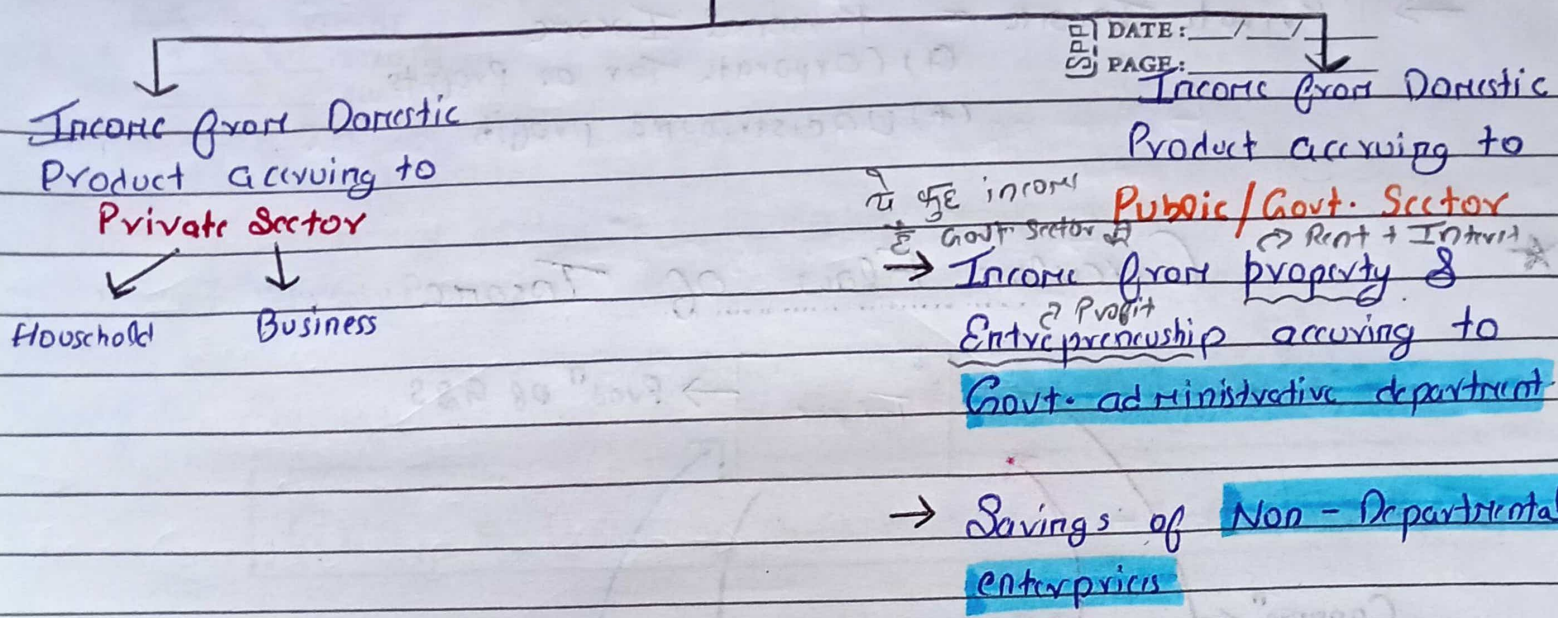 DATE: __/__/__
PAGE:
Income from Domestic
Product accruing to
Private Sector
Household
Business
Income from Domestic
Product accruing to
ये कुछ income
है Govt sector में
Public/Govt. Sector
Rent + Interest
→ Income from property &
Profit
Entrepreneuship accuring to
Govt. administrative department
→ Savings of Non-Departmental
enterprises